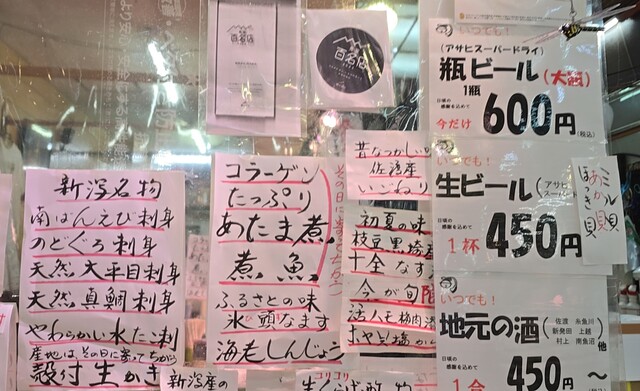 百名店
百名店
いつでも!
(アサヒスーパードライ)
瓶ビール(大瓶)
1瓶
日頃の
感謝を込めて
今だけ
600円
(税込)
いつでも!
生ビール
日頃の
感謝を込めて
1杯
450円
いつでも!
地元の酒
佐渡 糸魚川
新発田 上越
村上 南魚沼
他
日頃の
感謝を込めて
1合
450円~
ミル貝
あか貝
ほっき貝
昔なつかしい
佐渡産
いごねり
初夏の味
枝豆黒埼産
十全なす
今が旬
コラーゲン
たっぷり
あたま煮
煮魚
ふるさとの味
氷頭なます
海老しんじょう
新潟名物
南ばんえび刺身
のどぐろ刺身
天然大平目刺身
天然真鯛刺身
やわらかい水たこ刺
産地はその日に寄ってちがう
殻付生かき
新潟産の